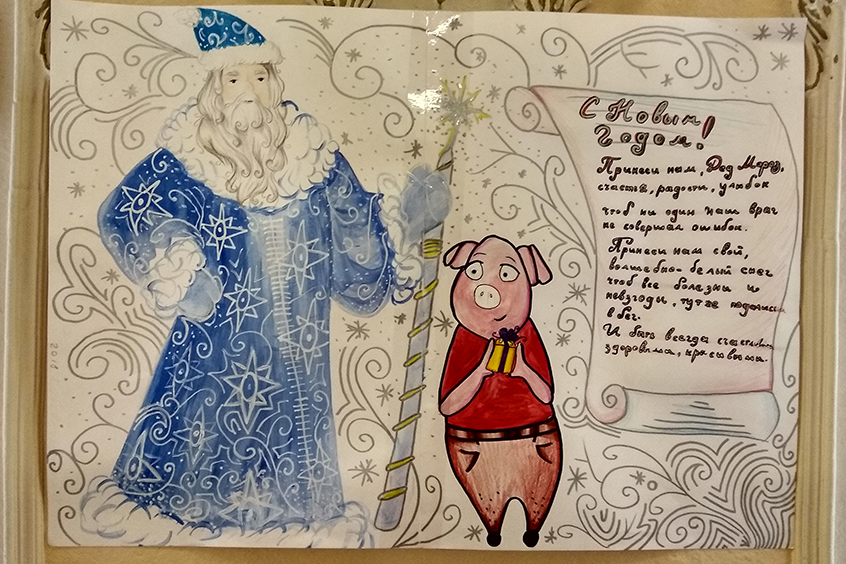 С Новым
Годом!
Принеси нам, Дед Мороз,
счастья, радости, улыбок
чтоб ни один наш враг
не совершал ошибок.
Принеси нам свой,
волшебно-белый снег
чтоб все болезни и
невзгоды, тут же подались
в бег.
И быть всегда счастливыми
здоровыми, красивыми.
2018